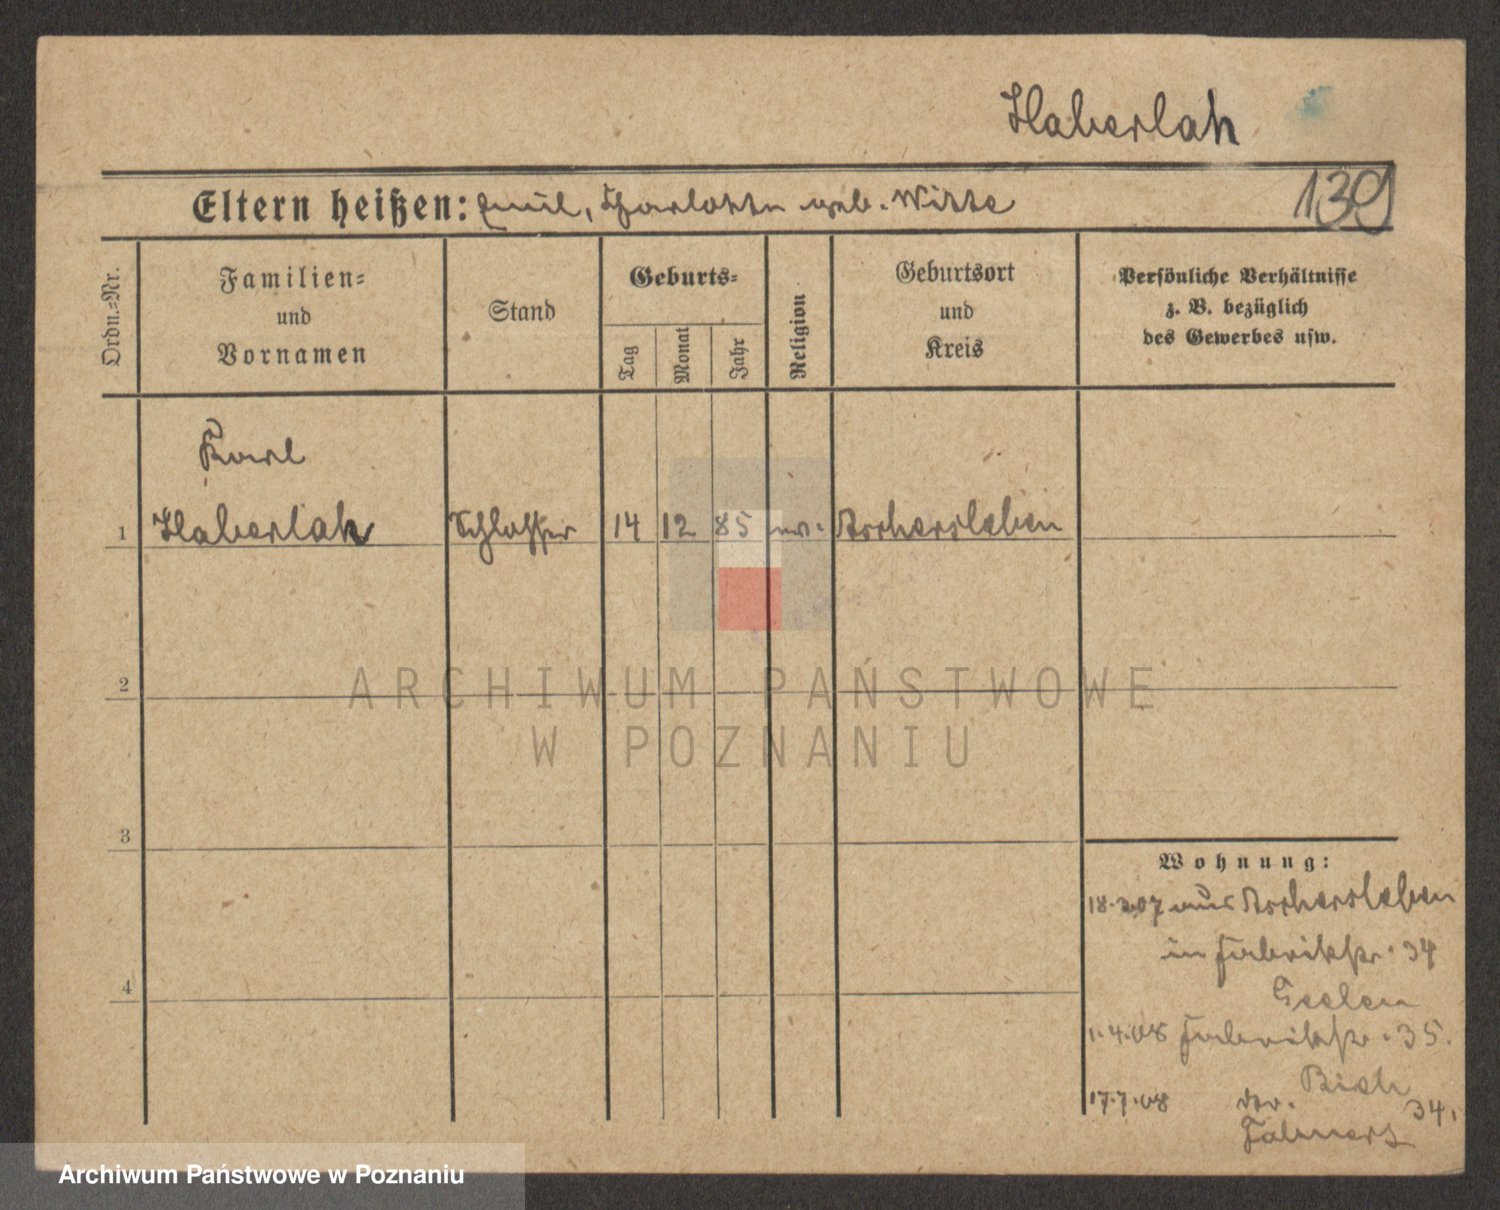 Haberlah
139
Eltern heißen: Emil, Charlotte geb. Witte
Ordn.=Nr.
Familien=
und
Vornamen
Stand
Geburts=
Tag
Monat
Jahr
Religion
Geburtsort
und
Kreis
Persönliche Verhältnisse
z. B. bezüglich
des Gewerbes usw.
Karl
1 Haberlah Schlosser 14 12 85 Aschersleben
2
3
4
Wohnung:
18.3.07 aus Aschersleben
in Fabrikstr. 34
1.4.08 Fabrikstr. 35.
17.7.08 34.
ARCHIWUM PAŃSTWOWE
W POZNANIU
Archiwum Państwowe w Poznaniu